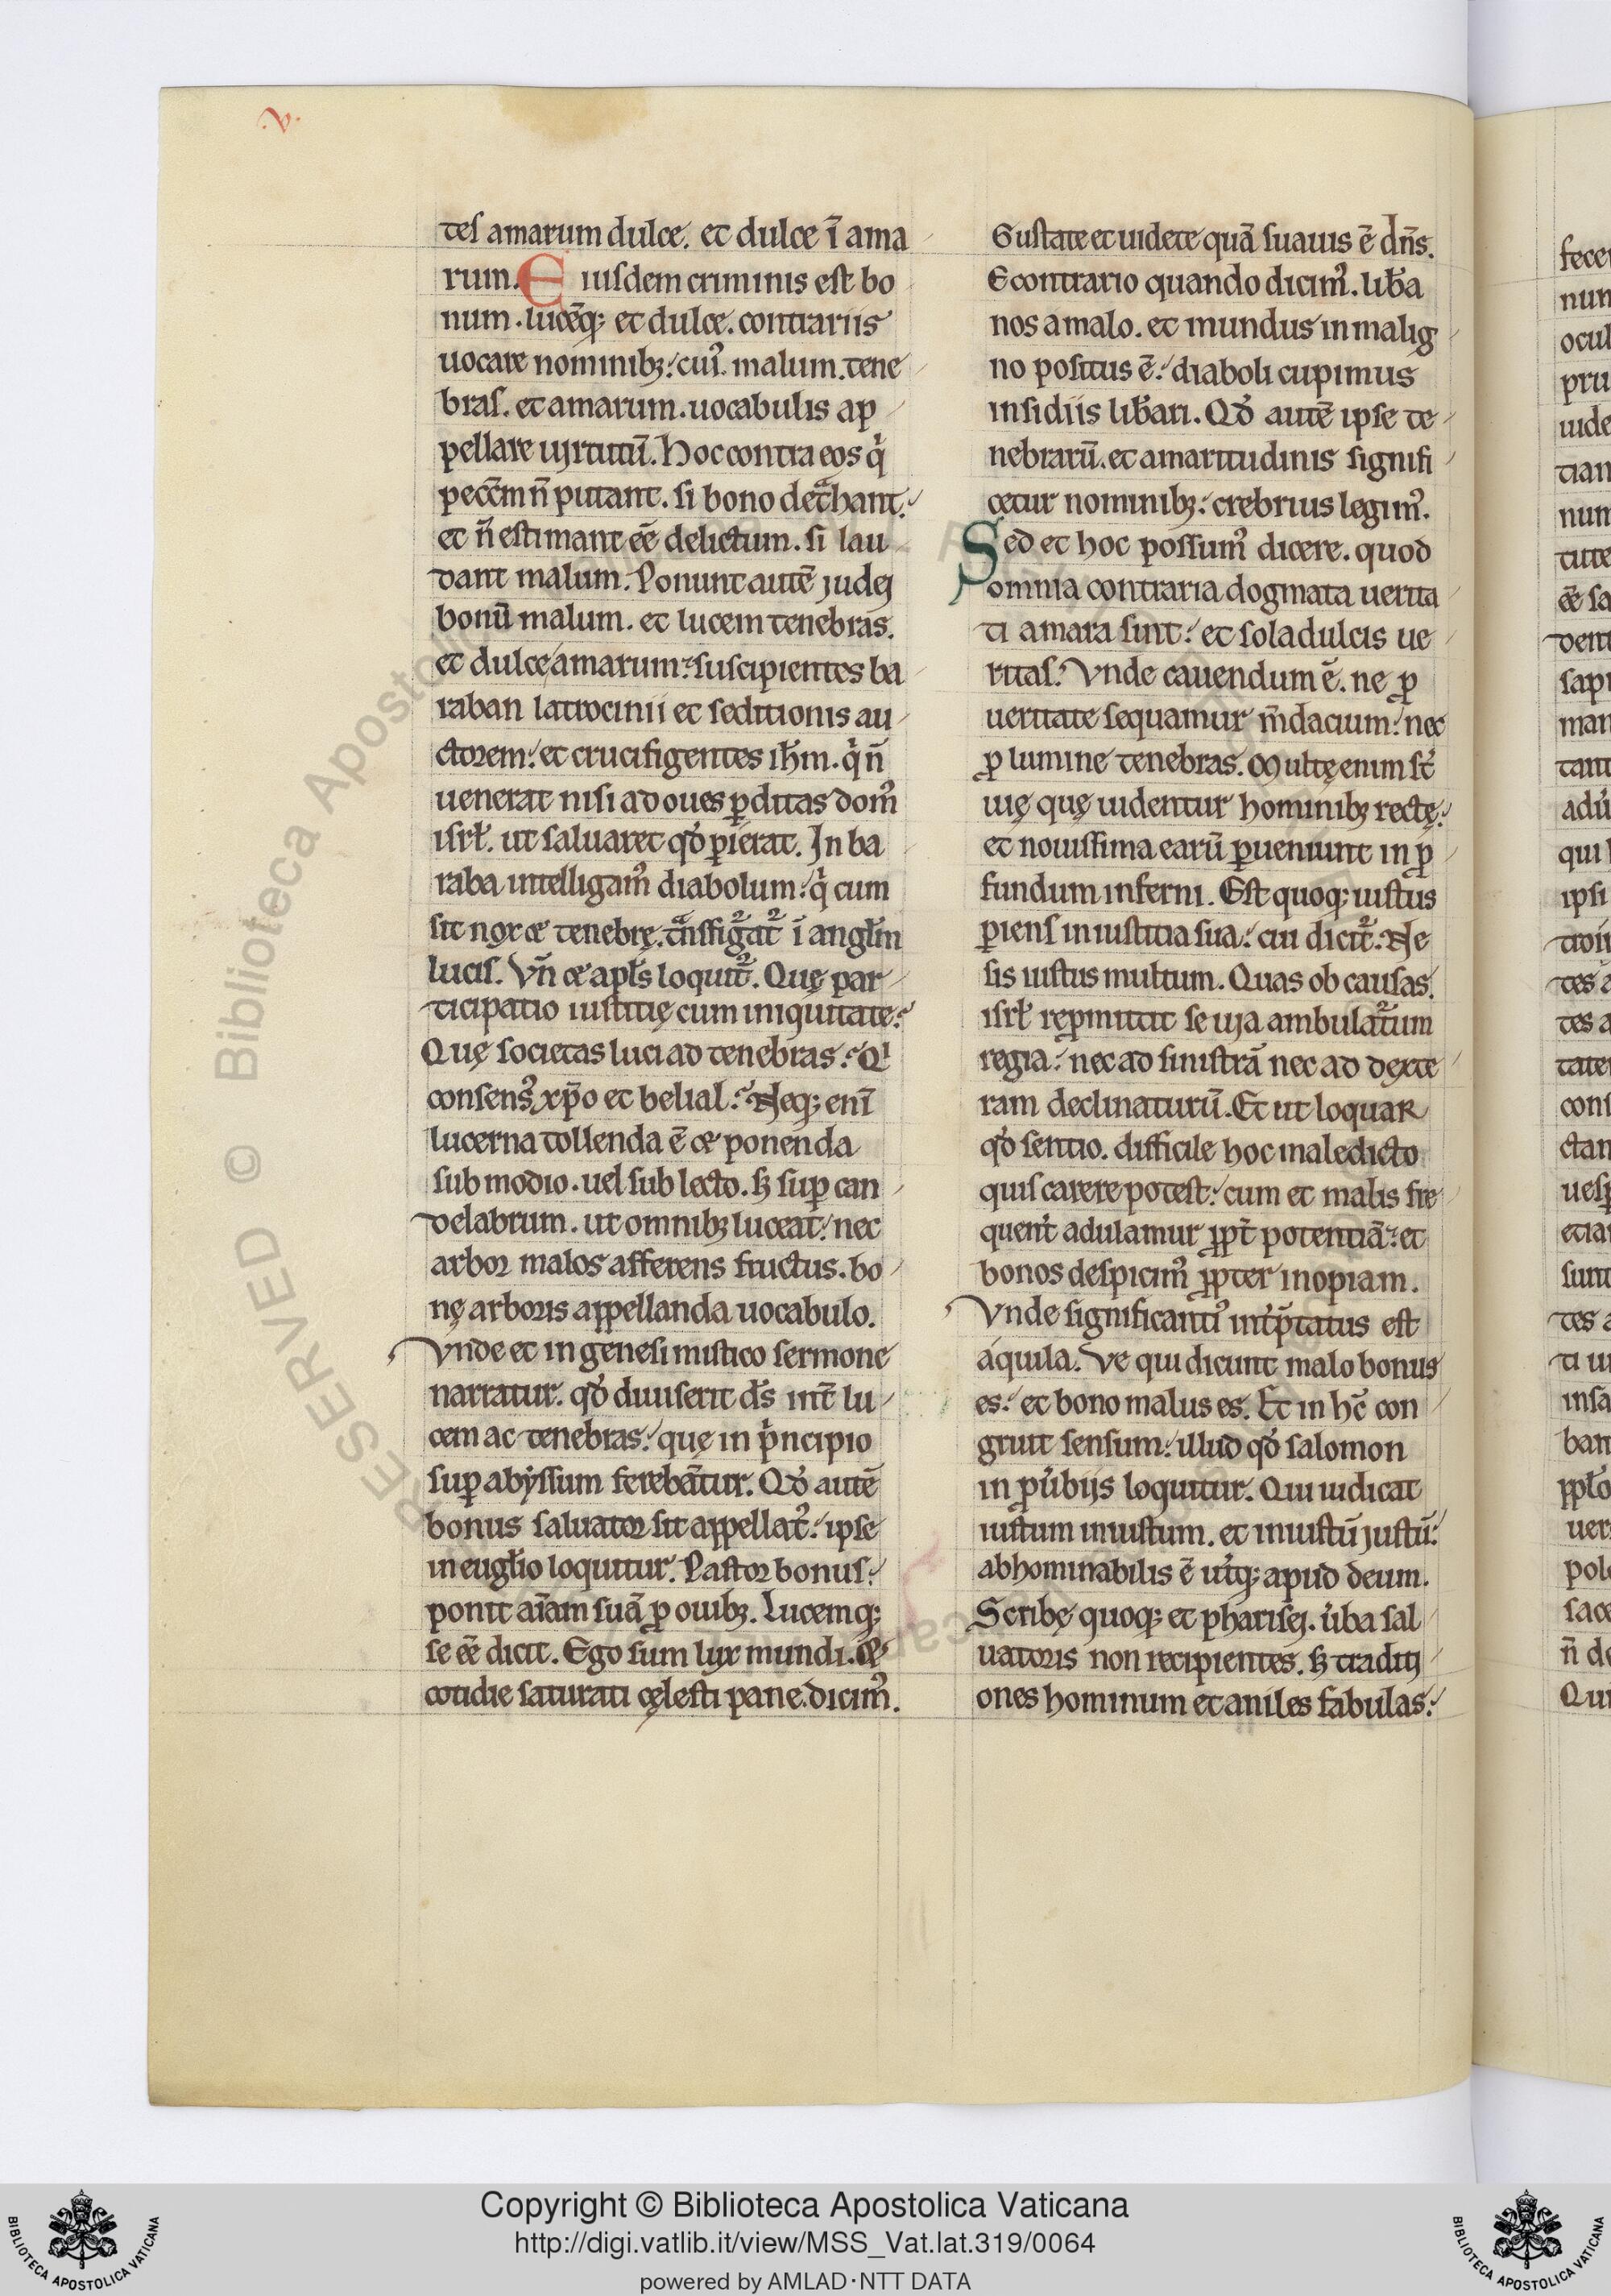 .v.
tes amarum dulce. et dulce ī ama
rum. Eiusdem criminis est bo
num. lucēq; et dulce. contrariis
uocare nominib;: cui᷒ malum. tene
bras. et amarum. uocabulis ap
pellare uirtutū. Hoc contra eos q̇
peccm̄ n̄ putant. si bono det̾hant:
et n̄ estimant eē delictum. si lau
dant malum. Ponunt autē iudei
bonū malum. et lucem tenebras.
et dulce amarum: suscipientes ba
raban latrocinii et seditionis au
ctorem: et crucifigentes ih̄m. q̇ n̄
uenerat nisi ad oues ꝑditas dom᷒
isrł. ut saluaret qd̓ ꝑierat. In ba
raba intelligam᷒ diabolum: q̇ cum
sit nox & tenebrę. t̾nsfigat᷑ ī angłm
lucis. Vn̄ & apłs loquit᷑. Quę par
ticipatio iustitię cum iniquitate:
Quę societas luci ad tenebras: Qi
consens᷒ xp̄o et belial: Neq; enī
lucerna tollenda ē & ponenda
sub modio. uel sub lecto. s; suꝑ can
delabrum. ut omnib; luceat: nec
arbor malos afferens fructus. bo
nę arboris appellanda uocabulo.
Vnde et in genesi mistico sermone
narratur. qd̓ diuiserit ds̄ int̄ lu
cem ac tenebras: quę in pͥncipio
suꝑ abyssum ferebāntur. Qd̓ autē
bonus saluator sit appellat᷒: ipse
in eugłio loquitur. Pastor bonus:
ponit aīam suā ꝓ ouib;. Lucemq;
se eē dicit. Ego sum lux mundi. &
cotidie saturati cęlesti pane. dicim᷒.
Gustate et uidete quā suauis ē dn̄s.
Econtrario quando dicim᷒. lib̄a
nos a malo. et mundus in malig
no positus ē: diaboli cupimus
insidiis lib̄ari. Qd̓ autē ipse te
nebrarū. et amaritudinis signifi
cetur nominib;: crebrius legim᷒.
Sed et hoc possum᷒ dicere. quod
omnia contraria dogmata uerita
ti amara sint: et sola dulcis ue
ritas. Vnde cauendum ē. ne ꝓ
ueritate sequamur m̄dacium: nec
ꝓ lumine tenebras. Multę enim st̄
uię quę uidentur hominib; rectę:
et nouissima earū ꝑueniunt in ꝓ
fundum inferni. Est quoq; iustus
ꝑiens in iustitia sua: cui dicit᷑. Ne
sis iustus multum. Quas ob causas.
isrł repmittit se uia ambulat᷑um
regia: nec ad sinistrā nec ad dexte
ram declinaturū. Et ut loquar
qd̓ sentio. difficile hoc maledicto
quis carere potest: cum et malis fre
quent̄ adulamur ꝓpt̄ potentiā: et
bonos despicim᷒ ꝓpter inopiam.
Vnde significanti᷒ int̓p̄tatus est
aquila. Ve qui dicunt malo bonus
es: et bono malus es. Et in hc̄ con
gruit sensum: illud qd̓ salomon
in ꝓu̓biis loquitur. Qui iudicat
iustum iniustum. et iniustū iustū:
abhominabilis ē ut̓q; apud deum.
Scribę quoq; et pharisei. u̓ba sal
uatoris non recipientes. s; traditi
ones hominum et aniles fabulas:
fece
nun
ocul
pru
iude
tian
nun
tute
eē sa
dent
sapi
man
tant
adu̓
qui
ipsi
tes a
tes a
tate
cons
ctan
uesp
etia
sunt
tes a
ti ui
insa
ban
uer
pol
sace
n̄ de
Qui
RESERVED © Biblioteca Apostolica Vaticana
Copyright © Biblioteca Apostolica Vaticana
http://digi.vatlib.it/view/MSS_Vat.lat.319/0064
powered by AMLAD·NTT DATA
BIBLIOTECA APOSTOLICA VATICANA
BIBLIOTECA APOSTOLICA VATICANA